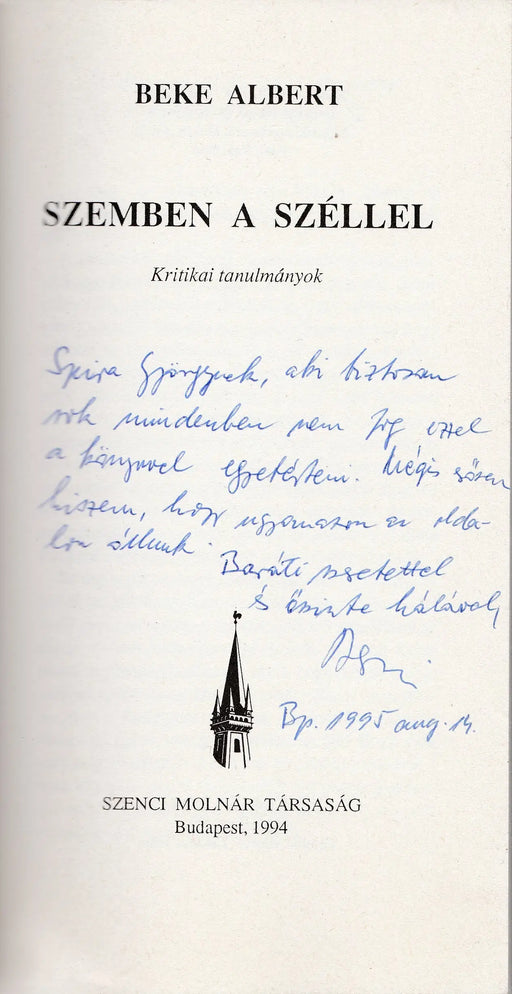 BEKE ALBERT
SZEMBEN A SZÉLLEL
Kritikai tanulmányok
Spira Györgynek, aki biztosan
sok mindenben nem fog ezzel
a könyvvel egyetérteni. Mégis erősen
hiszem, hogy ugyanazon az olda-
lon állunk.
Baráti szeretettel
és őszinte hálával,
Bp. 1995 aug. 14.
SZENCI MOLNÁR TÁRSASÁG
Budapest, 1994